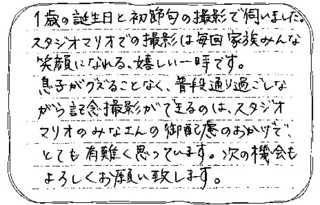 1歳の誕生日と初節句の撮影で伺いました。
スタジオマリオでの撮影は毎回家族みんな
笑顔になれる、嬉しい一時です。
息子がグズることなく、普段通り過ごしな
がら記念撮影ができるのは、スタジオ
マリオのみなさんの御配慮のおかげで、
とても有難く思っています。次の機会も
よろしくお願い致します。